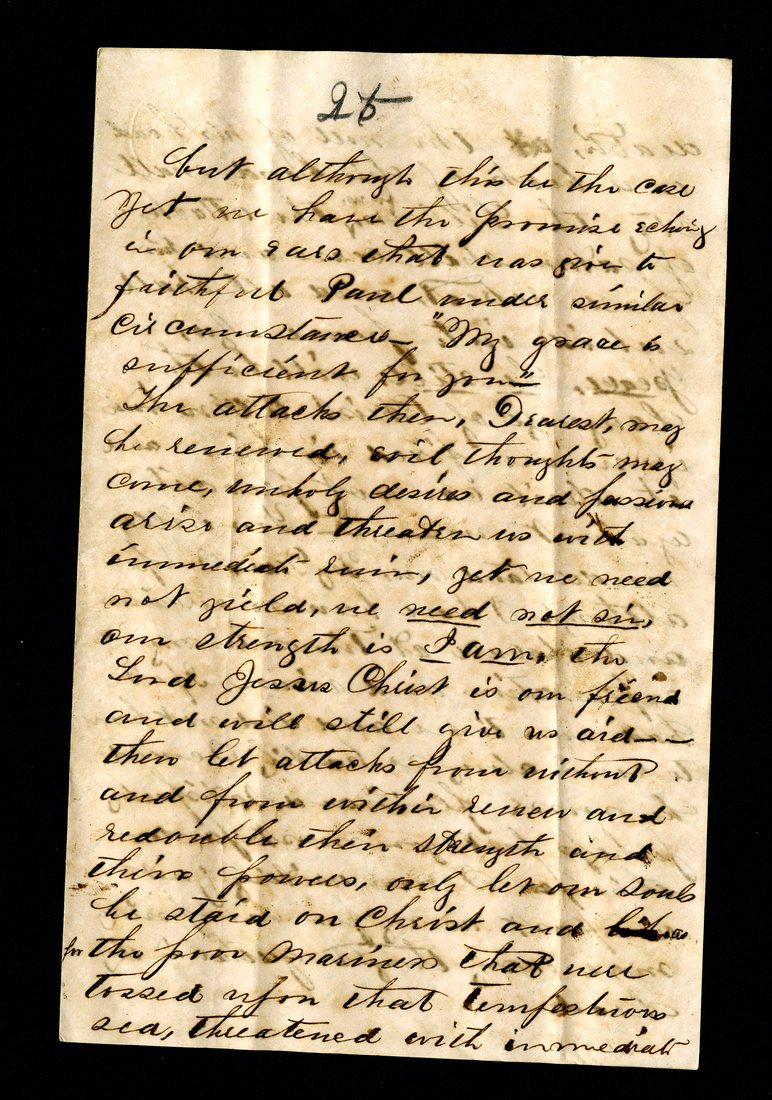 25
but although this be the case
yet we have the promise echoing
in our ears that was given to
faithful Paul under similar
circumstances—"My grace is
sufficient for you"
The attacks then, Dearest, may
be renewed, evil thoughts may
come, unholy desires and passions
arise and threaten us with
immediate ruin, yet we need
not yield, we need not sin,
our strength is I am, the
Lord Jesus Christ is our friend
and will still give us aid——
then let attacks from without
and from within renew and
redouble their strength and
their powers, only let our souls
be staid on Christ and as
for the poor mariners that were
tossed upon that tempestuous
sea, threatened with immediate